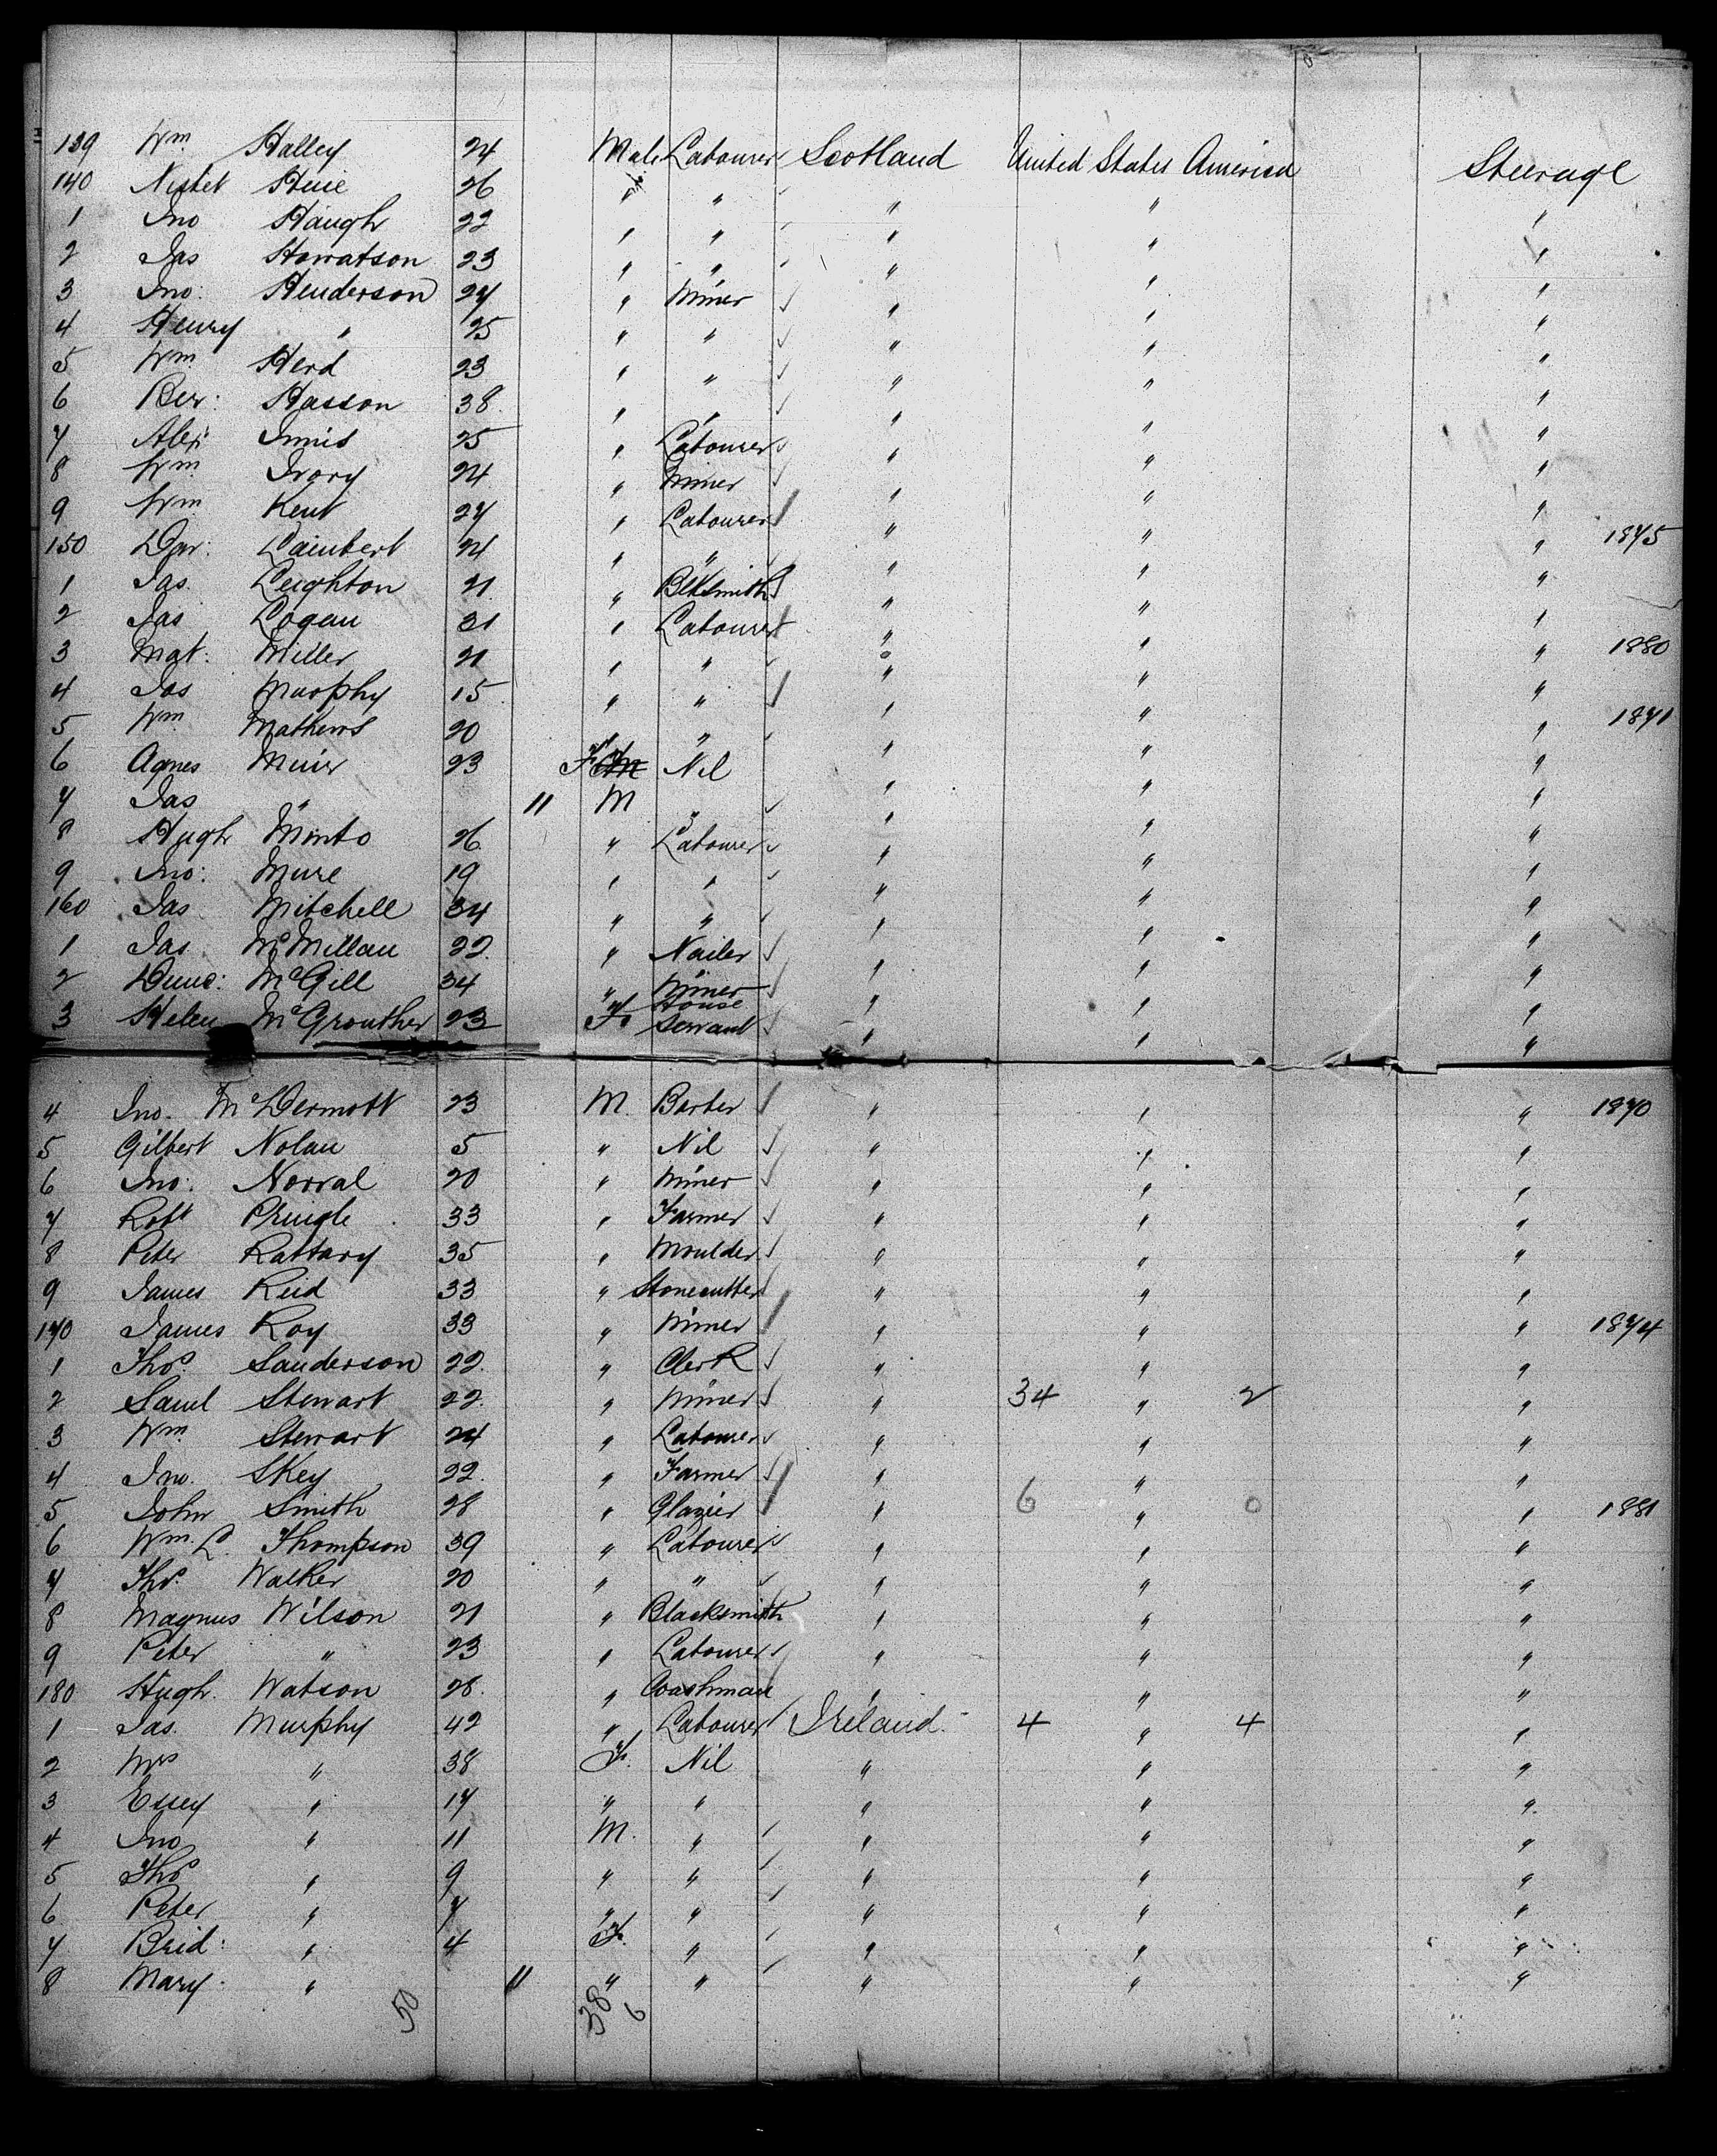 139 Wm Halley 24 Male Labourer Scotland United States America Steerage
140 Nisbet Huie 26 " " " " "
1 Jno Haugh 22 " " " " "
2 Jas Howatson 23 " " " " "
3 Jno: Henderson 24 " Miner " " "
4 Henry " 25 " " " " "
5 Wm Herd 23 " " " " "
6 Ber: Hasson 38 " " " " "
7 Alex Innis 25 " Labourer " " "
8 Wm Ivory 24 " Miner " " "
9 Wm Kent 27 " Labourer " " "
150 Dav: Lambert 24 " " " " " 1875
1 Jas. Leighton 21 " Blksmith " " "
2 Jas Logan 31 " Labourer " " "
3 Mgt: Miller 21 " " " " " 1880
4 Jas Murphy 15 " " " " "
5 Wm Mathews 20 " " " " " 1871
6 Agnes Muir 23 F Nil " " "
7 Jas " 11 M " " " "
8 Hugh Minto 26 " Labourer " " "
9 Jno: Mure 19 " " " " "
160 Jas Mitchell 34 " " " " "
1 Jas McMillan 22 " Nailer " " "
2 Dunc: McGill 34 " Miner " " "
3 Helen McGrouther 23 F. House Servant " " "
4 Jno. McDermott 23 M. Barber " " " 1870
5 Gilbert Nolan 5 " Nil " " "
6 Jno: Norval 20 " Miner " " "
7 Robt Pringle 33 " Farmer " " "
8 Peter Rattary 35 " Moulder " " "
9 James Reid 33 " Stonecutter " " "
170 James Roy 33 " Miner " " " 1874
1 Thos. Sanderson 22 " Clerk " " "
2 Saml Stewart 22 " Miner " 34 " 2 "
3 Wm Stewart 24 " Labourer " " "
4 Jno. Skey 22 " Farmer " " "
5 John Smith 28 " Glazier " 6 " 0 " 1881
6 Wm. L. Thompson 39 " Labourer " " "
7 Thos. Walker 20 " " " " "
8 Magnus Wilson 21 " Blacksmith " " "
9 Peter " 23 " Labourer " " "
180 Hugh. Watson 28 " Coachman " " "
1 Jas. Murphy 42 " Labourer Ireland. 4 " 4 "
2 Mrs " 38 F. Nil " " "
3 Essey " 17 " " " " "
4 Jno " 11 M. " " " "
5 Thos " 9 " " " " "
6 Peter " 7 " " " " "
7 Brid: " 4 F. " " " "
8 Mary. " 11 " " " " "
50 38 6